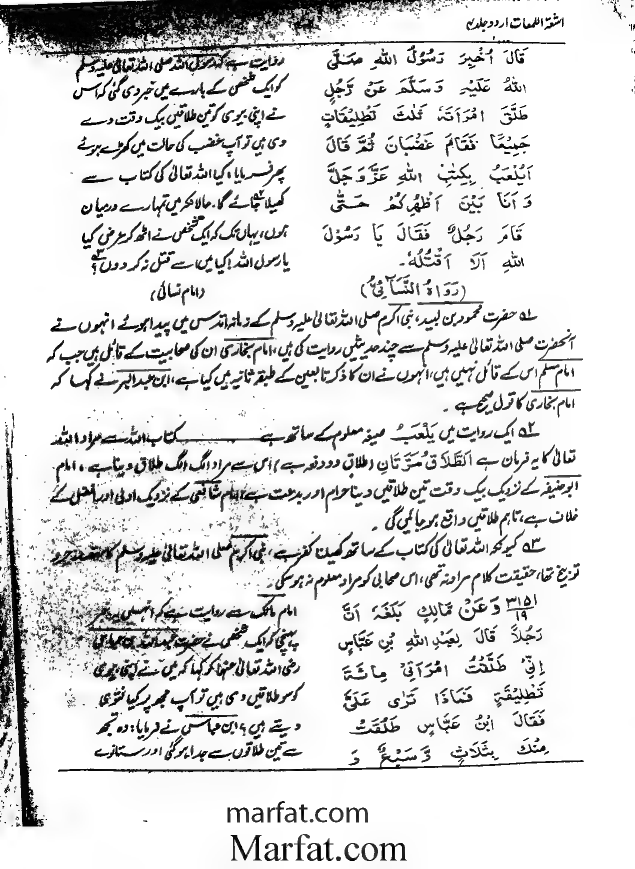 اشعۃ اللمعات اردو جلد
قَالَ اُخْبِرَ رَسُوْلُ اللهِ صَلَّى
اللهُ عَلَيْهِ وَسَلَّمَ عَنْ رَّجُلٍ
طَلَّقَ امْرَاَتَهٗ ثَلٰثَ تَطْلِيْقَاتٍ
جَمِيْعًا فَقَامَ غَضْبَانَ ثُمَّ قَالَ
اَيُلْعَبُ بِكِتٰبِ اللهِ عَزَّ وَجَلَّ
وَ اَنَا بَيْنَ اَظْهُرِكُمْ حَتّٰى
قَامَ رَجُلٌ فَقَالَ يَا رَسُوْلَ
اللهِ اَلَا اَقْتُلُهٗ۔
(رَوَاهُ النَّسَآئِيُّ)
روایت ہے کہ رسول اللہ صلی اللہ تعالیٰ علیہ وسلم
کو ایک شخص کے بارے میں خبر دی گئی کہ اس
نے اپنی بیوی کو تین طلاقیں بیک وقت دے
دی ہیں تو آپ غضب کی حالت میں کھڑے ہوئے
پھر فرمایا: کیا اللہ تعالیٰ کی کتاب سے
کھیلا جائے گا۔ حالانکہ میں تمہارے درمیان
ہوں، یہاں تک کہ ایک شخص نے اٹھ کر عرض کیا
یا رسول اللہ! کیا میں اسے قتل نہ کر دوں؟
(امام نسائی)
۱ے حضرت محمود بن لبید، نبی اکرم صلی اللہ تعالیٰ علیہ وسلم کے زمانہ اقدس میں پیدا ہوئے انہوں نے
آنحضرت صلی اللہ تعالیٰ علیہ وسلم سے چند حدیثیں روایت کی ہیں، امام بخاری ان کی صحابیت کے قائل ہیں جب کہ
امام مسلم اس کے قائل نہیں ہیں، انہوں نے ان کا ذکر تابعین کے طبقہ ثانیہ میں کیا ہے، ابن عبدالبر نے کہا کہ
امام بخاری کا قول صحیح ہے۔
۲ے ایک روایت میں یَلْعَبُ صیغہ معلوم کے ساتھ ہے ـــــــ کتاب اللہ سے مراد اللہ
تعالیٰ کا یہ فرمان ہے اَلطَّلَاقُ مَرَّتَانِ (طلاق دو دفعہ ہے) اس سے مراد الگ الگ طلاق دینا ہے، امام
ابو حنیفہ کے نزدیک بیک وقت تین طلاقیں دینا حرام اور بدعت ہے، امام شافعی کے نزدیک اولیٰ اور افضل کے
خلاف ہے، تاہم طلاقیں واقع ہو جائیں گی۔
۳ے کیونکہ اللہ تعالیٰ کی کتاب کے ساتھ کھیلنا کفر ہے، نبی اکرم صلی اللہ تعالیٰ علیہ وسلم کا مقصد زجر و
توبیخ تھا، حقیقت کلام مراد نہ تھی، اس صحابی کو مراد معلوم نہ ہو سکی۔
۳۱۵۱/۱۹ وَعَنْ مَالِكٍ بَلَغَهٗ اَنَّ
رَجُلًا قَالَ لِعَبْدِ اللهِ بْنِ عَبَّاسٍ
اِنِّيْ طَلَّقْتُ امْرَاَتِيْ مِائَةَ
تَطْلِيْقَةٍ فَمَاذَا تَرٰى عَلَيَّ
فَقَالَ ابْنُ عَبَّاسٍ طَلُقَتْ
مِنْكَ بِثَلَاثٍ وَّ سَبْعٌ وَّ
امام مالک سے روایت ہے کہ انہیں یہ خبر
پہنچی کہ ایک شخص نے حضرت عبداللہ بن عباس
رضی اللہ تعالیٰ عنہما کو کہا کہ میں نے اپنی بیوی
کو سو طلاقیں دی ہیں تو آپ مجھ پر کیا فتویٰ
دیتے ہیں، ابن عباس نے فرمایا: وہ تجھ
سے تین طلاقوں سے جدا ہو گئی اور ستانوے
marfat.com
Marfat.com